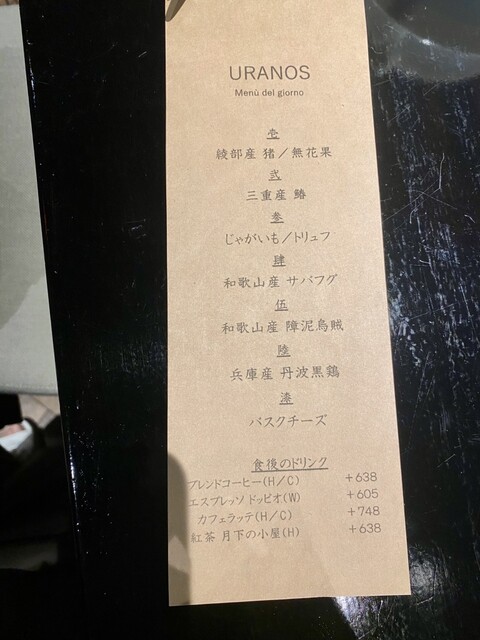 URANOS
Menù del giorno
壱
綾部産 猪／無花果
弐
三重産 鰆
参
じゃがいも／トリュフ
肆
和歌山産 サバフグ
伍
和歌山産 障泥烏賊
陸
兵庫産 丹波黒鶏
漆
バスクチーズ
食後のドリンク
ブレンドコーヒー(H／C) +638
エスプレッソ ドッピオ(W) +605
カフェラッテ(H／C) +748
紅茶 月下の小屋(H) +638